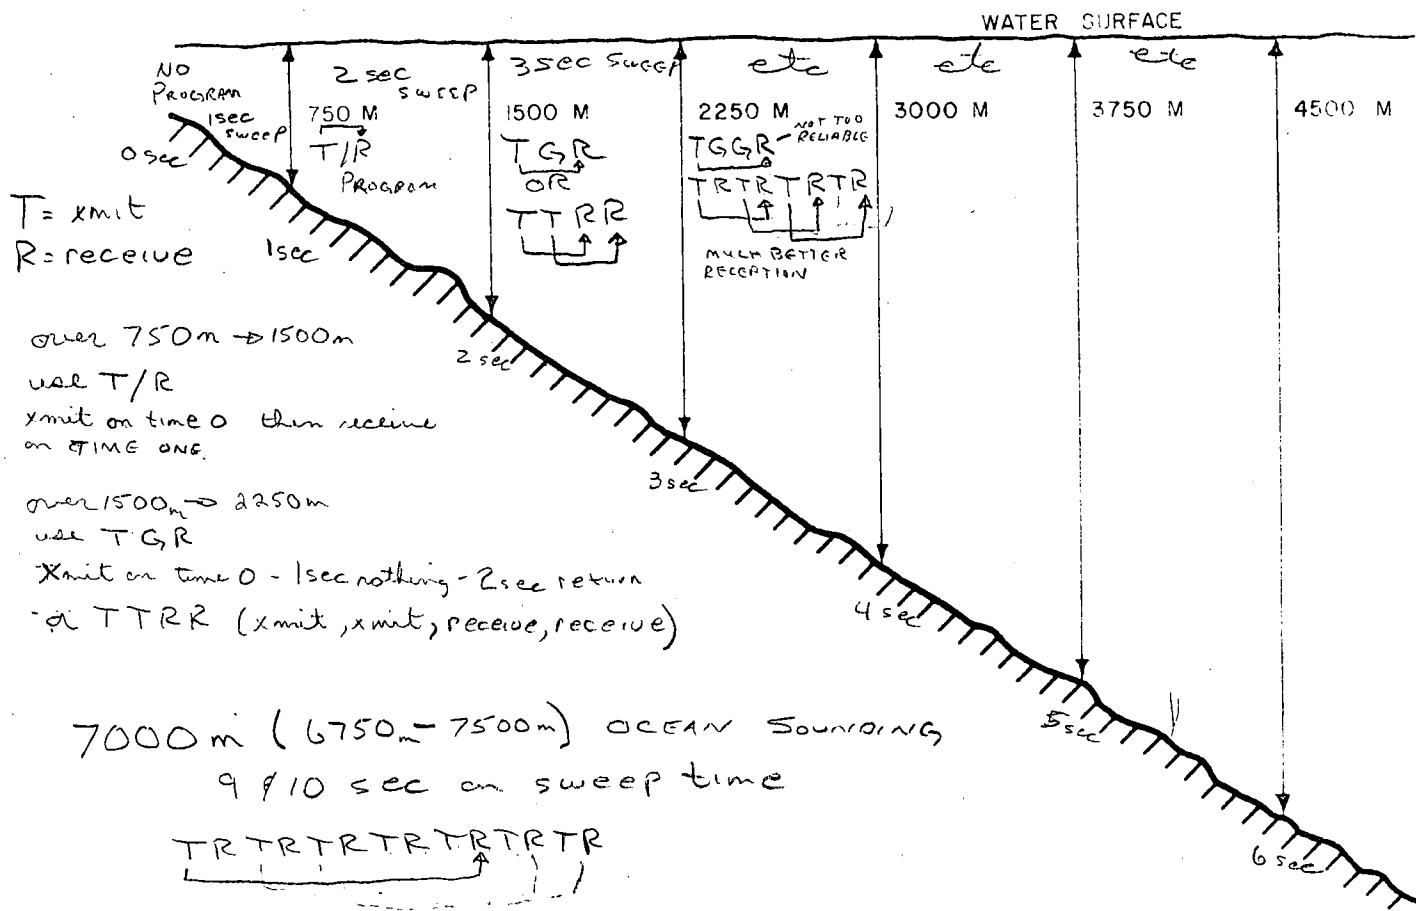 WATER SURFACE
NO PROGRAM
1sec sweep
2 sec sweep
3 sec SWEEP
etc
etc
etc
750 M
1500 M
2250 M
3000 M
3750 M
4500 M
T/R
PROGRAM
T G R
OR
T T R R
T G G R
NOT TOO RELIABLE
T R T R T R T R
MUCH BETTER
RECEPTION
0 sec
1 sec
2 sec
3 sec
4 sec
5 sec
6 sec
T = xmit
R = receive
over 750m → 1500m
use T/R
xmit on time 0 then receive
on TIME ONE.
over 1500m → 2250m
use T G R
Xmit on time 0 - 1sec nothing - 2sec return
or T T R R (xmit, xmit, receive, receive)
7000m (6750m - 7500m) OCEAN SOUNDING
9 / 10 sec on sweep time
T R T R T R T R T R T R T R